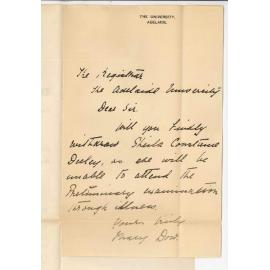 THE UNIVERSITY,
ADELAIDE.
The Registrar
The Adelaide University
Dear Sir.
Will you kindly
withdraw Sheila Constance
Deeley, as she will be
unable to attend the
Preliminary examination
through illness.
Yours truly
Mary Dow.